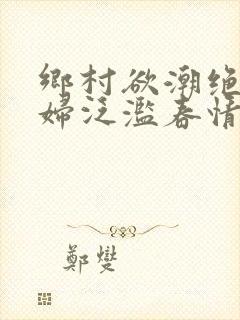 鄉村欲潮绝
婦泛濫春情
鄭燮